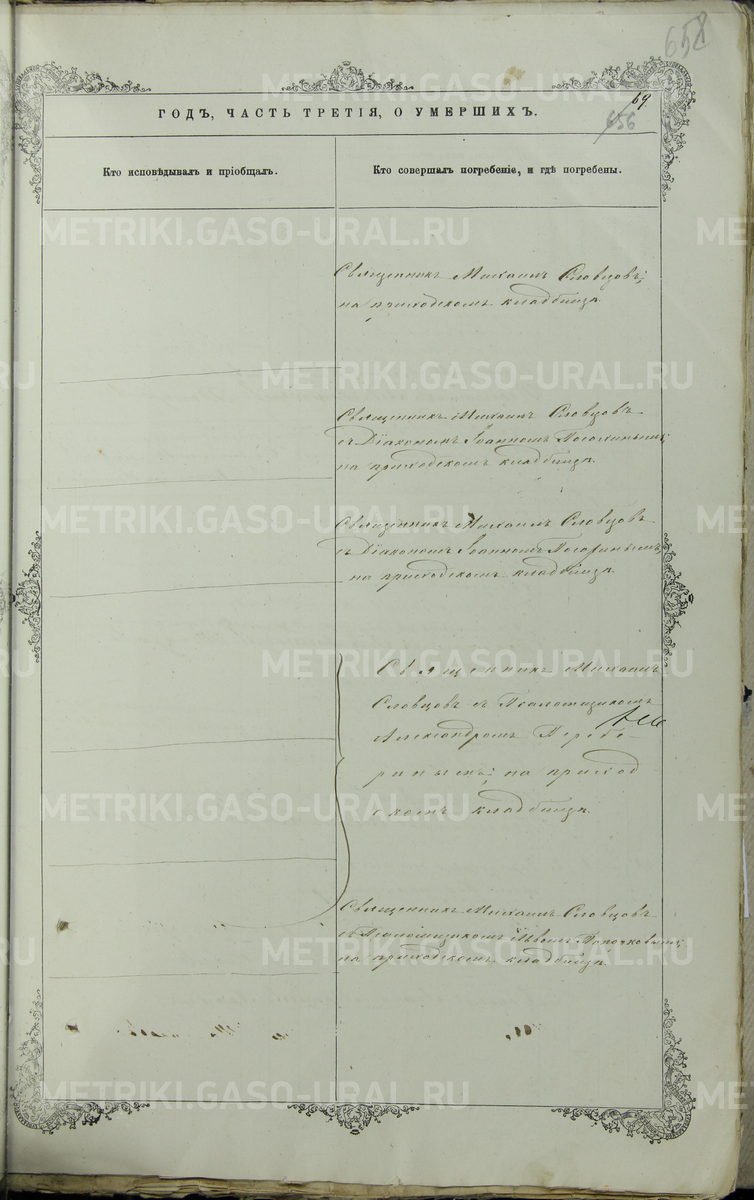 658
69
656
ГОДЪ, ЧАСТЬ ТРЕТІЯ, О УМЕРШИХЪ.
Кто исповѣдывалъ и пріобщалъ.
Кто совершалъ погребеніе, и гдѣ погребены.
Священникъ Михаилъ Словцовъ;
на приходскомъ кладбищѣ.
Священникъ Михаилъ Словцовъ
съ Діакономъ Іоанномъ
на приходскомъ кладбищѣ.
Священникъ Михаилъ Словцовъ
съ Діакономъ Іоанномъ
на приходскомъ кладбищѣ.
Священникъ Михаилъ
Словцовъ съ Псаломщикомъ
Александромъ
на приход
скомъ кладбищѣ.
Священникъ Михаилъ Словцовъ
съ Псаломщикомъ
на приходскомъ кладбищѣ.
METRIKI.GASO-URAL.RU